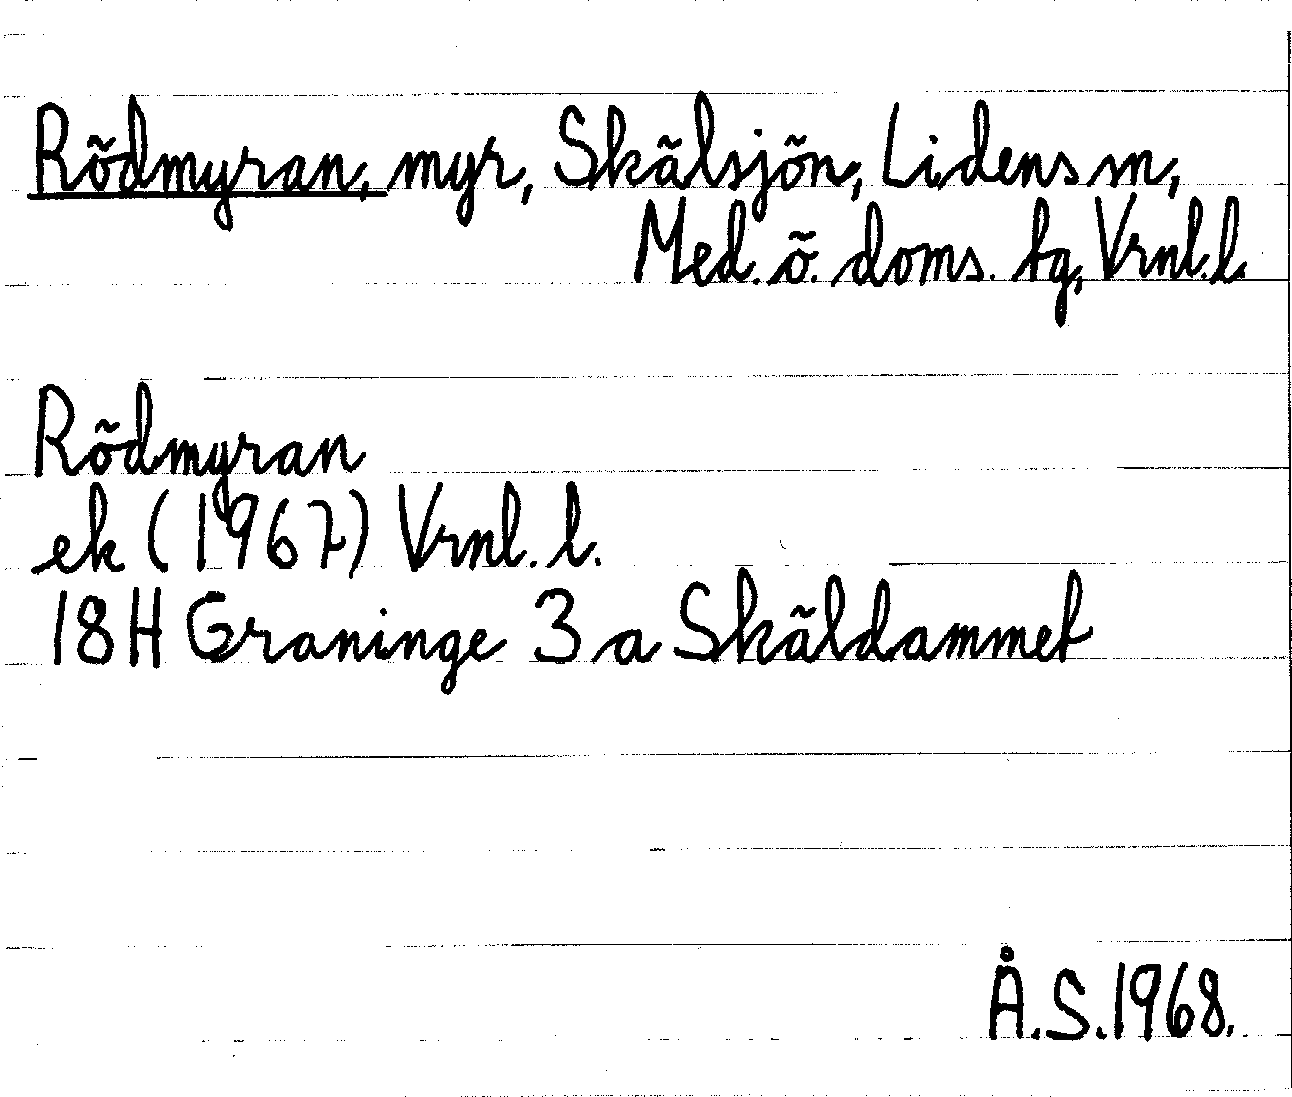 Rödmyran, myr, Skälsjön, Lidens sn,
Med. ö. doms. tg, Vrnl. l.
Rödmyran
ek (1967) Vrnl. l.
18H Graninge 3 a Skäldammet
Å.S.1968.